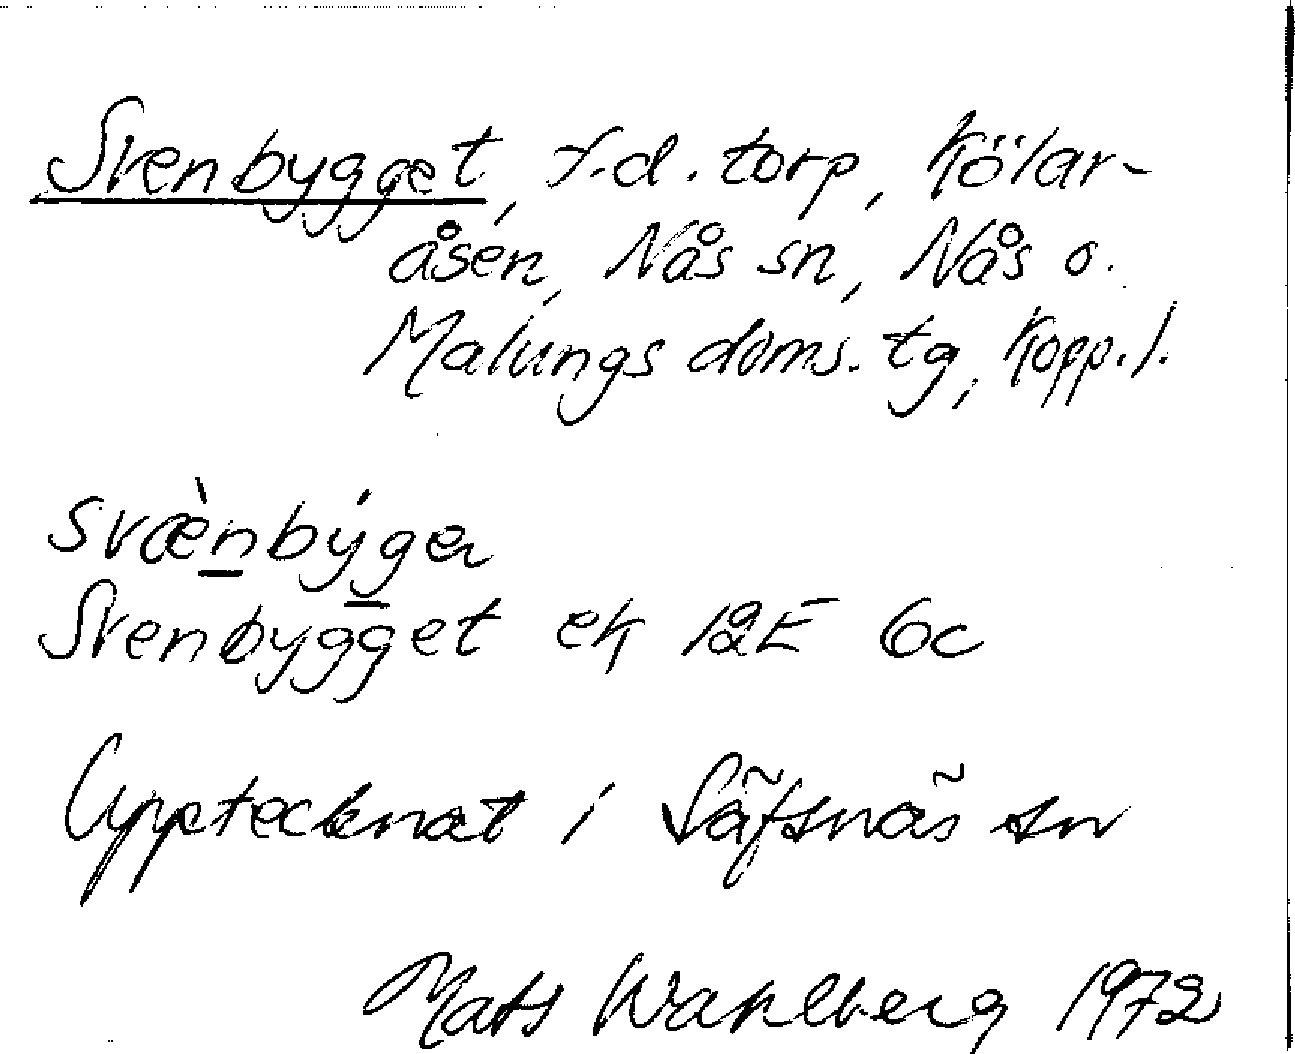 Svenbygget, f.d. torp, Kölar-
åsen, Nås sn, Nås o.
Malungs doms. tg, Kopp. l.
svæ̀n̲býg̲er
Svenbygget ek 12E 6c
Upptecknat i Säfsnäs sn
Mats Wahlberg 1972